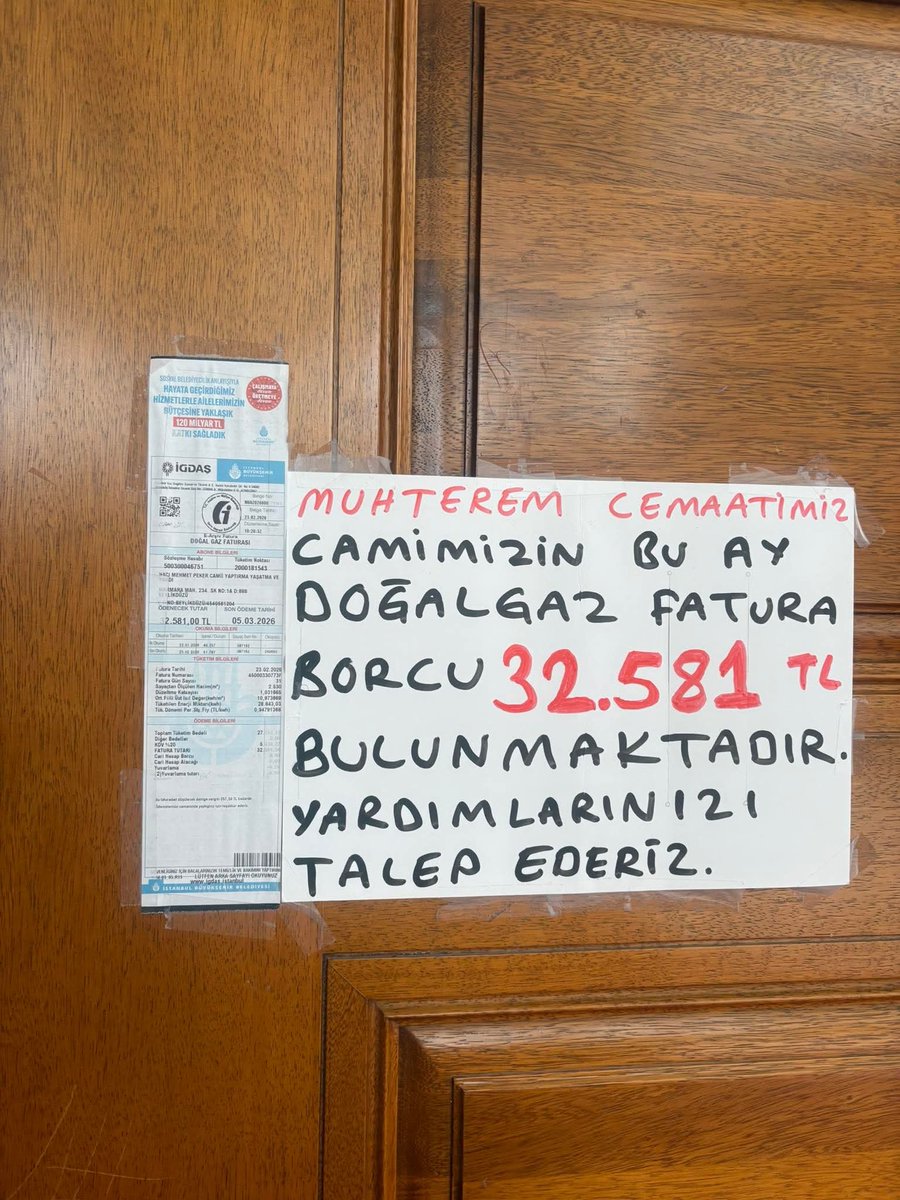 SOSYAL BELEDİYECİLİK ANLAYIŞIYLA
HAYATA GEÇİRDİĞİMİZ
HİZMETLERLE AİLELERİMİZİN
BÜTÇESİNE YAKLAŞIK
120 MİLYAR TL
KATKI SAĞLADIK
İGDAŞ
E-Arşiv Fatura
DOĞAL GAZ FATURASI
ABONE BİLGİLERİ
Sözleşme Hesabı Tüketim Noktası
500300046751 2000181543
MEHMET PEKER CAMİİ YAPTIRMA YAŞATMA VE
MAH. 234. SK NO:1A D:BBB
ÖDENECEK TUTAR SON ÖDEME TARİHİ
2.581,00 TL 05.03.2026
OKUMA BİLGİLERİ
TÜKETİM BİLGİLERİ
Fatura Tarihi 23.02.2026
Fatura Numarası
Fatura Gün Sayısı 31
ÖDEME BİLGİLERİ
Toplam Tüketim Bedeli 27
Diğer Bedeller
KDV %20
FATURA TUTARI 32
Cari Hesap Borcu
Cari Hesap Alacağı
Yuvarlama
LÜTFEN ARKA SAYFAYI OKUYUNUZ
www.igdas.istanbul
İSTANBUL BÜYÜKŞEHİR BELEDİYESİ
MUHTEREM CEMAATİMİZ
CAMİMİZİN BU AY
DOĞALGAZ FATURA
BORCU 32.581 TL
BULUNMAKTADIR.
YARDIMLARINIZI
TALEP EDERİZ.